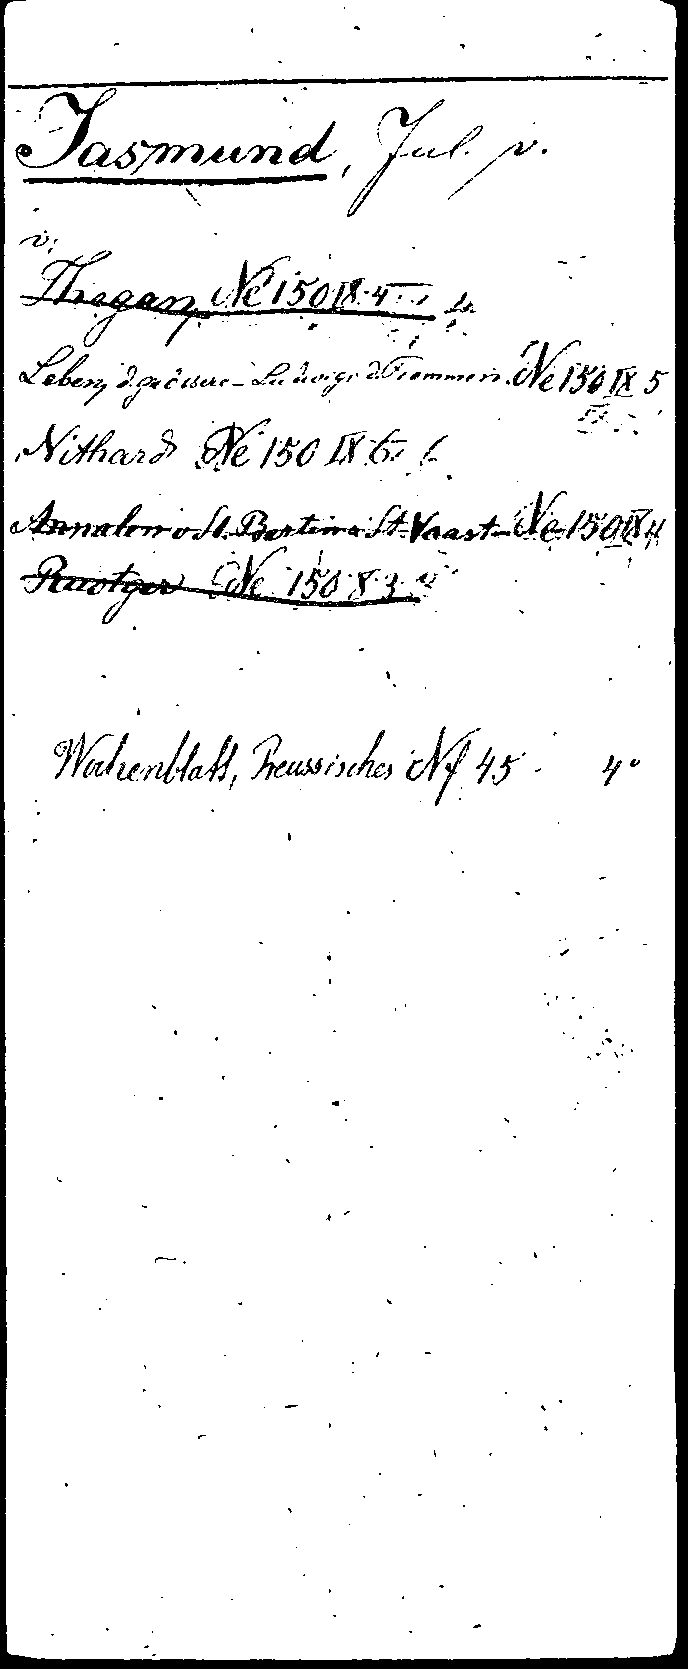 Jasmund, Jul. v.
v:
Thegan, Ne 150 IX 4
Leben, d. grössere - Ludwigs d. Frommen. Ne 150 IX 5
Nithard Ne 150 IX 6
Annalen v St. Bertin u St. Vaast Ne 150 IX 4
Ruotger Ne 150 8 3
Wochenblatt, Preussisches Nf 45 4°